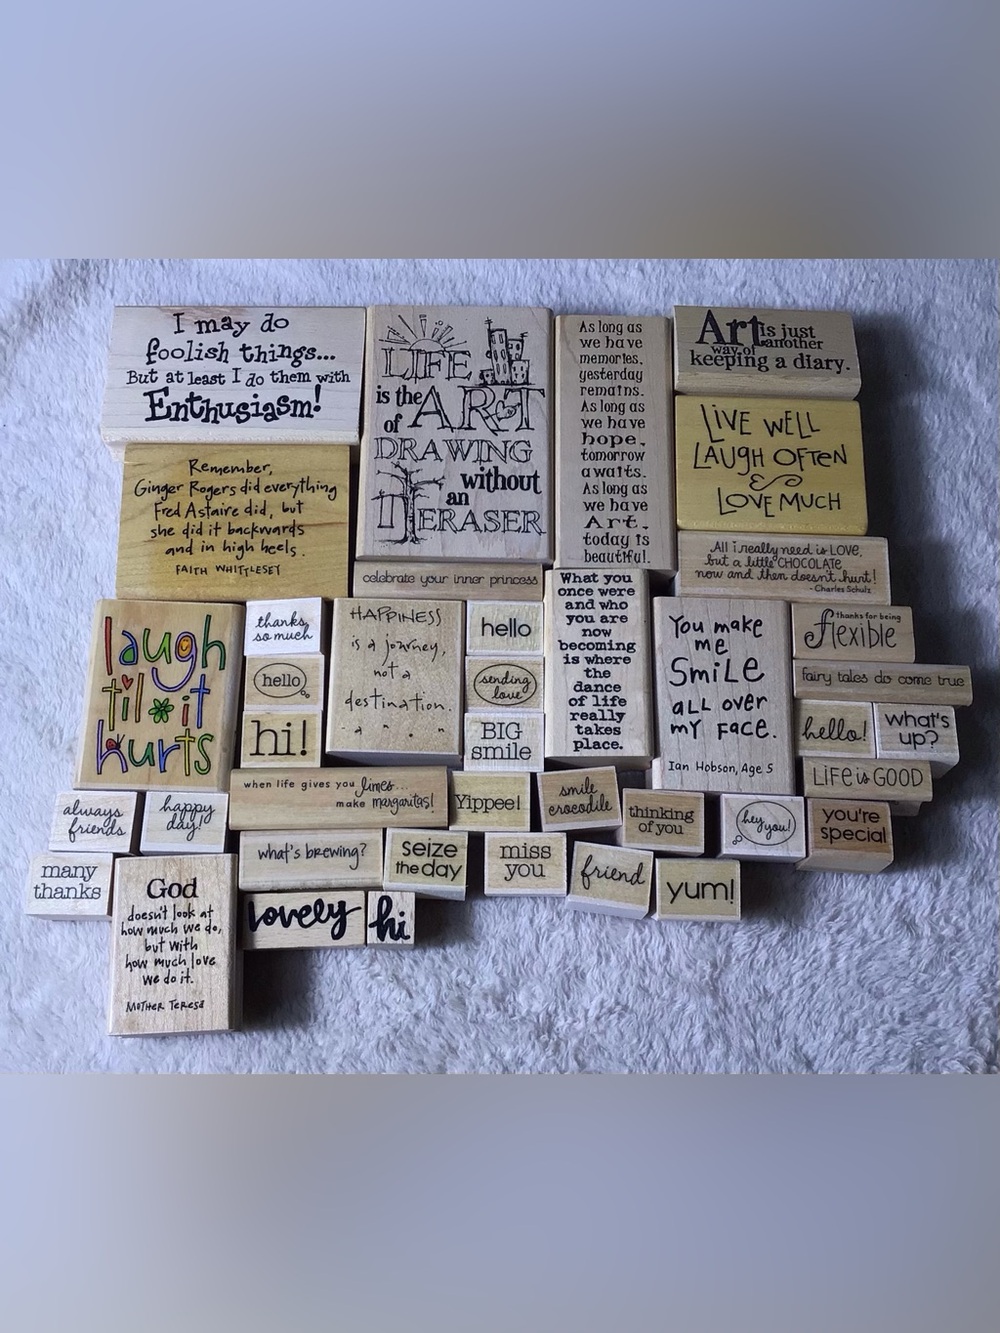 I may do
foolish things...
But at least I do them with
Enthusiasm!
LIFE
is the ART
of
DRAWING
without
an
ERASER
As long as
we have
memories,
yesterday
remains.
As long as
we have
hope,
tomorrow
awaits.
As long as
we have
Art,
today is
beautiful.
Art is just
another
way of
keeping a diary.
Remember,
Ginger Rogers did everything
Fred Astaire did, but
she did it backwards
and in high heels.
FAITH WHITTLESEY
LIVE WELL
LAUGH OFTEN
&
LOVE MUCH
celebrate your inner princess
All i really need is LOVE,
but a little CHOCOLATE
now and then doesn't hurt!
- Charles Schulz
laugh
til it
hurts
thanks
so much
hello
hi!
HAPPINESS
is a journey,
not a
destination.
hello
sending
love
BIG
smile
What you
once were
and who
you are
now
becoming
is where
the
dance
of life
really
takes
place.
You make
me
SMiLe
all over
my FACE.
Ian Hobson, Age 5
thanks for being
flexible
fairy tales do come true
hello!
what's
up?
LIFE is GOOD
when life gives you limes...
make margaritas!
Yippee!
smile
crocodile
thinking
of you
hey you!
you're
special
always
friends
happy
day!
what's brewing?
seize
the day
miss
you
friend
yum!
many
thanks
God
doesn't look at
how much we do,
but with
how much love
we do it.
MOTHER TERESA
lovely
hi